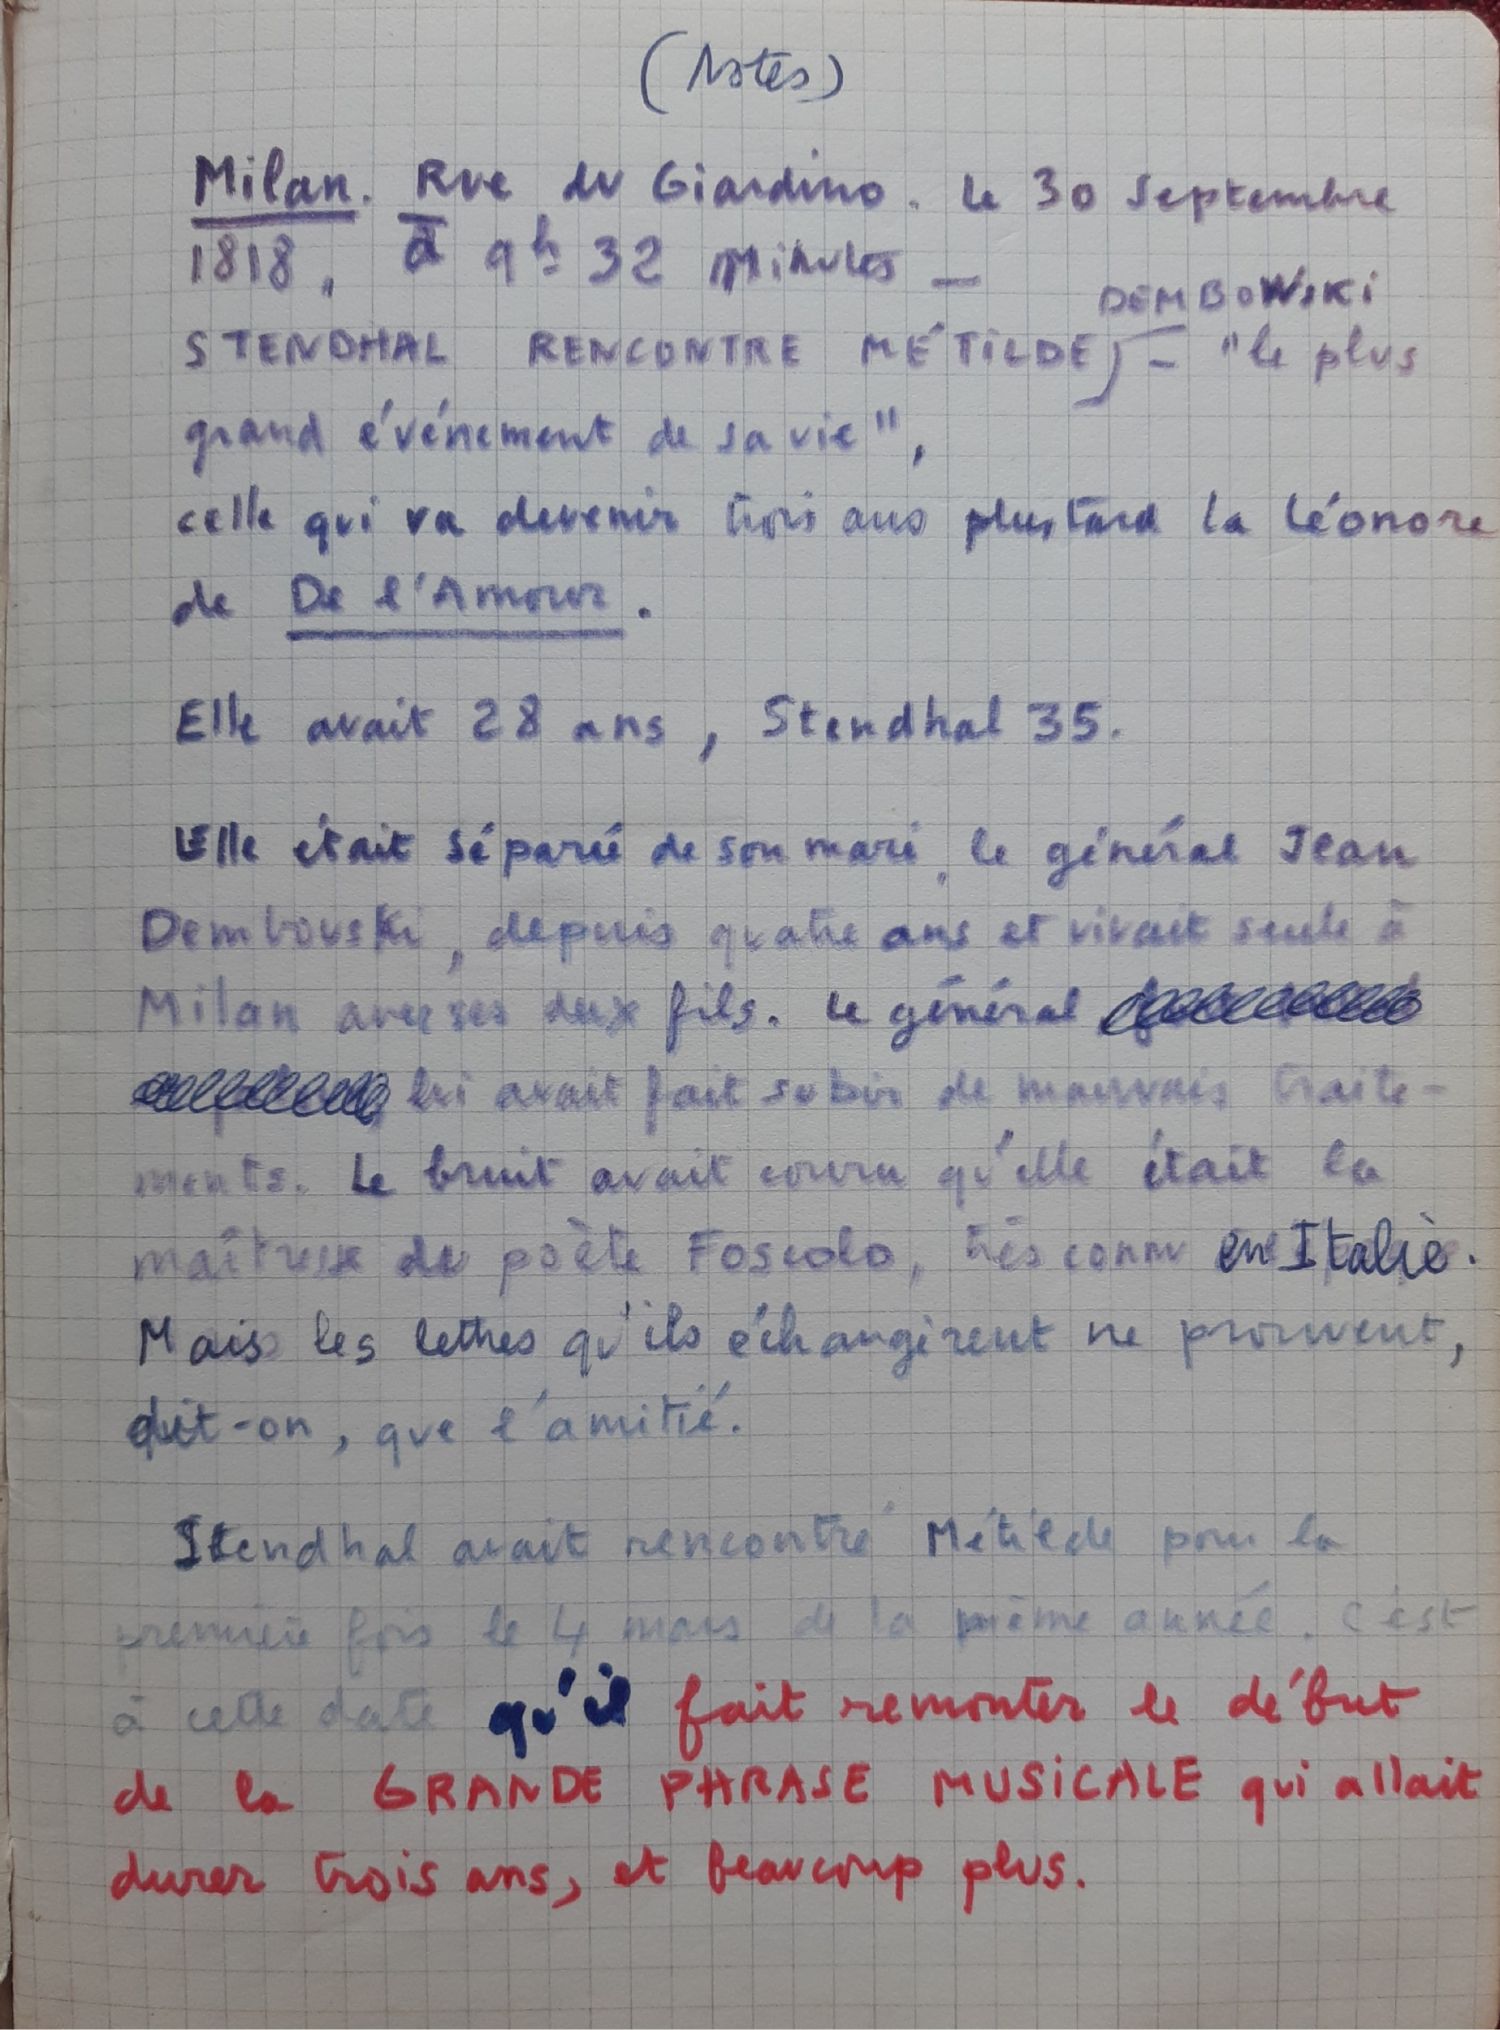 (Notes)
Milan. Rue du Giardino. Le 30 Septembre
1818, à 9h 32 Minutes –
DEMBOWSKI
STENDHAL RENCONTRE MÉTILDE – "le plus
grand événement de sa vie",
celle qui va devenir trois ans plus tard la Léonore
de De l'Amour.
Elle avait 28 ans, Stendhal 35.
Elle était séparée de son mari, le général Jean
Dembowski, depuis quatre ans et vivait seule à
Milan avec ses deux fils. Le général
lui avait fait subir de mauvais traite-
ments. Le bruit avait couru qu'elle était la
maîtresse du poète Foscolo, très connu en Italie.
Mais les lettres qu'ils échangèrent ne prouvent,
dit-on, que l'amitié.
Stendhal avait rencontré Métilde pour la
première fois le 4 mars de la même année. C'est
à cette date qu'il fait remonter le début
de la GRANDE PHRASE MUSICALE qui allait
durer trois ans, et beaucoup plus.